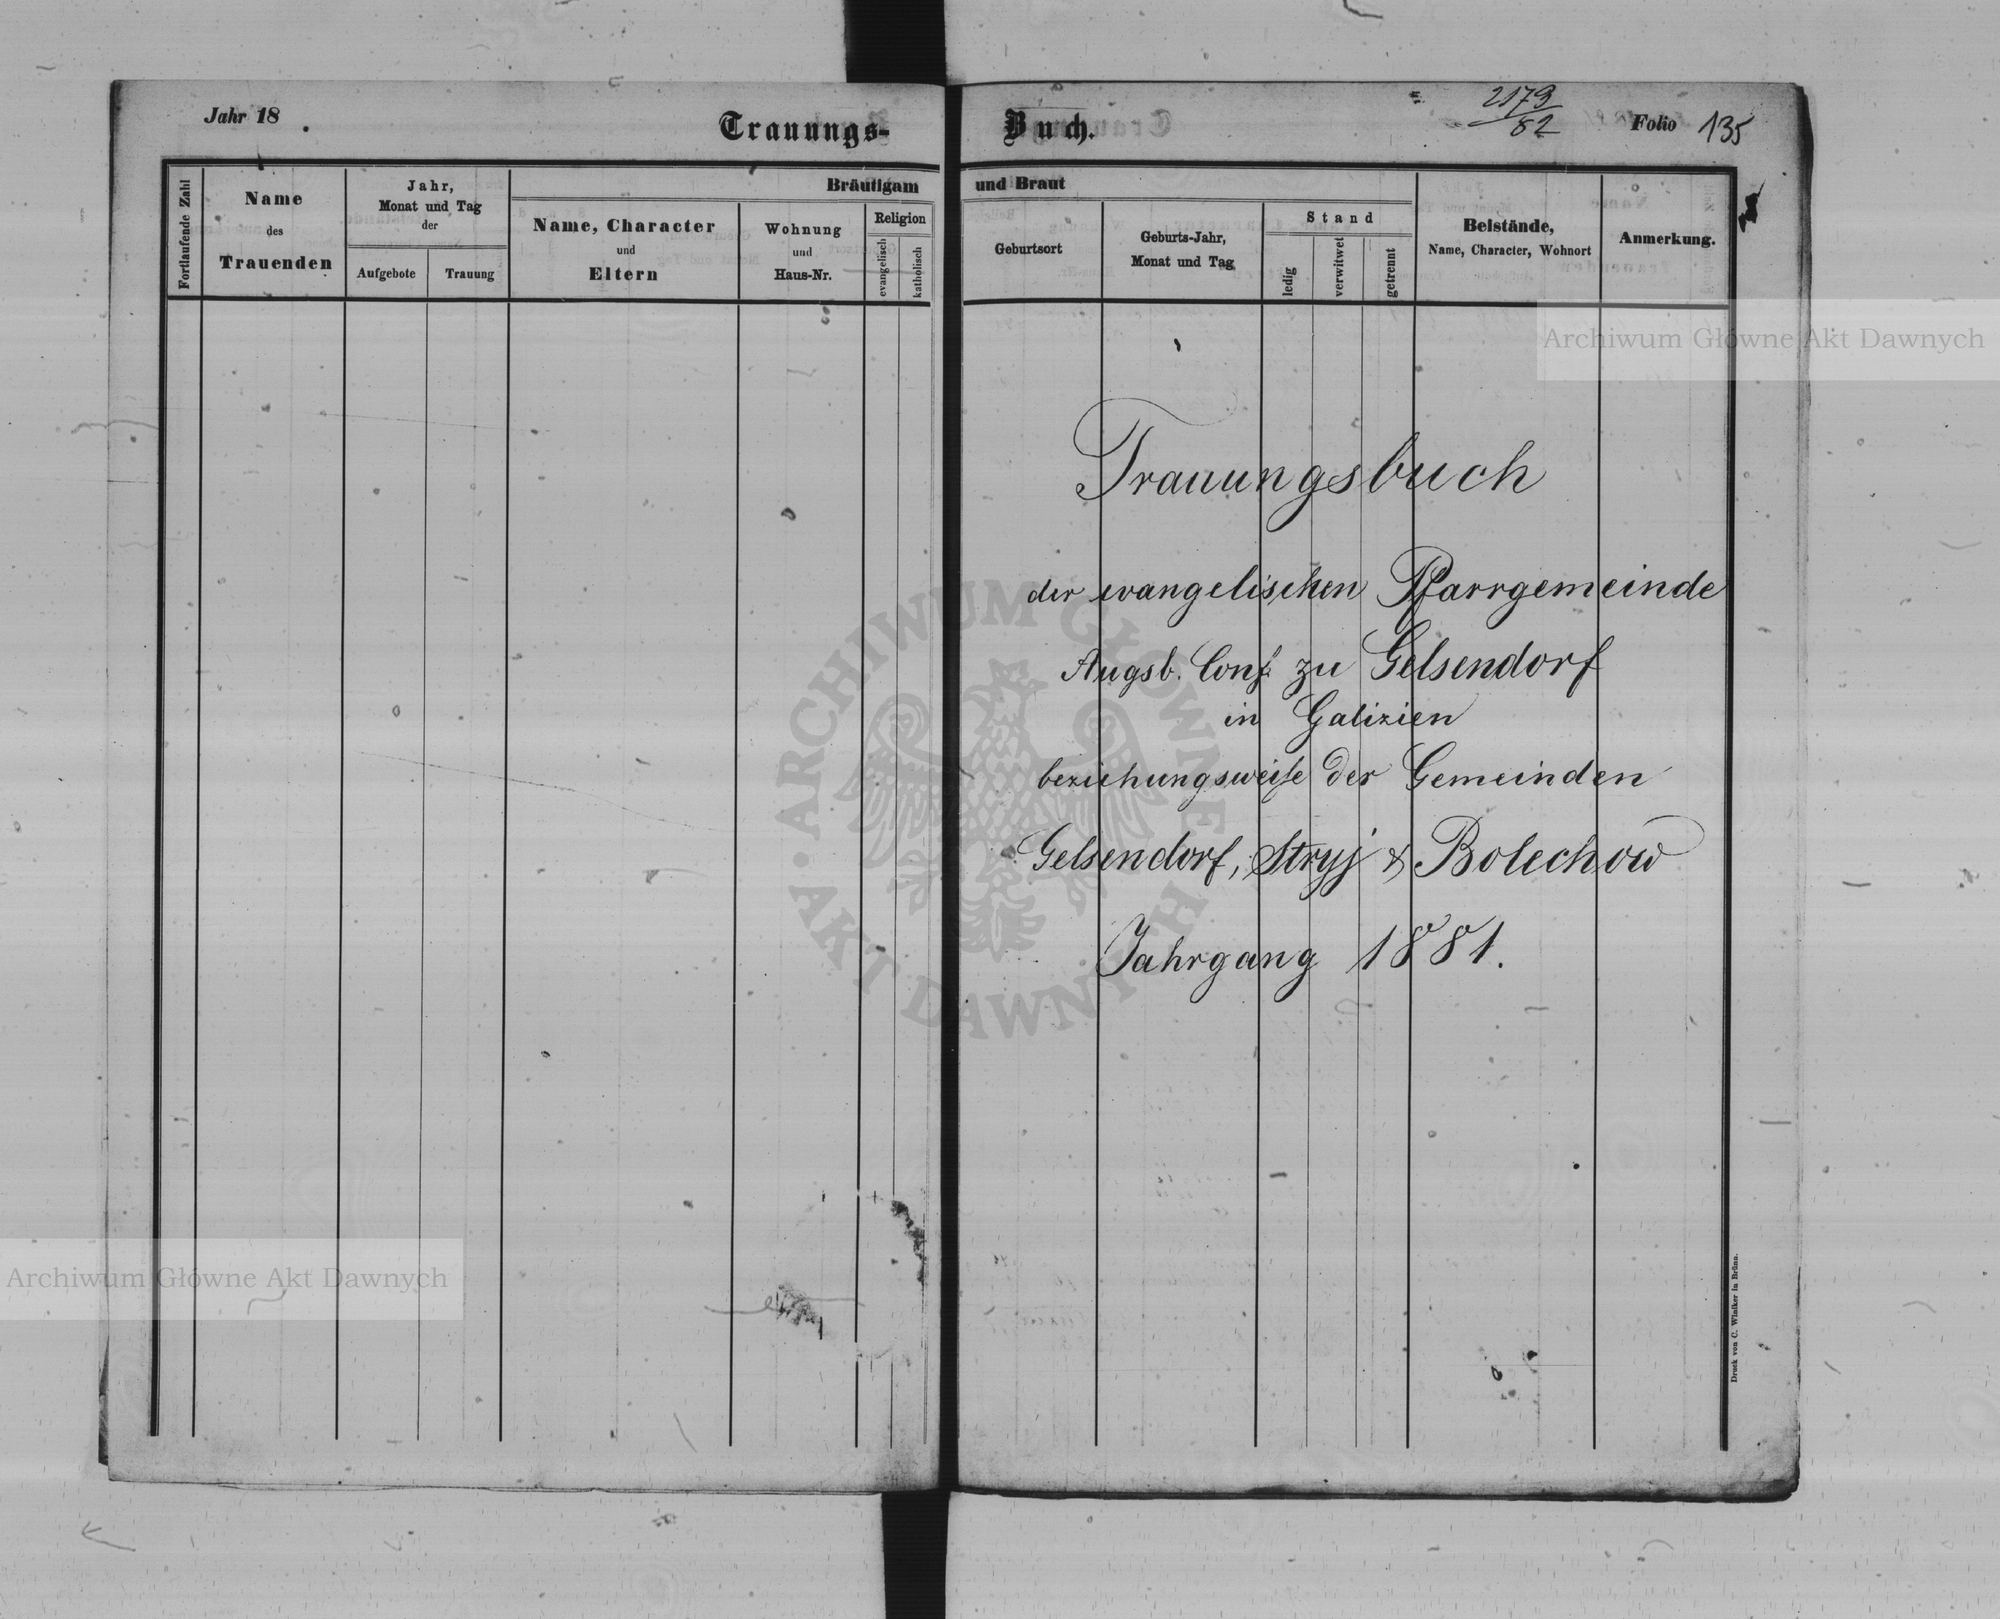 Jahr 18
Trauungs-Buch.
2179/82
Folio 135
Fortlaufende Zahl
Name
des
Trauenden
Jahr,
Monat und Tag
der
Aufgebote
Trauung
Bräutigam und Braut
Name, Character
und
Eltern
Wohnung
und
Haus-Nr.
Religion
evangelisch
katholisch
Geburtsort
Geburts-Jahr,
Monat und Tag
Stand
ledig
verwitwet
getrennt
Beistände,
Name, Character, Wohnort
Anmerkung.
Archiwum Główne Akt Dawnych
Trauungsbuch
der evangelischen Pfarrgemeinde
Augsb. Conf. zu Gelsendorf
in Galizien
beziehungsweiſe der Gemeinden
Gelsendorf, Stryj & Bolechow
Jahrgang 1881.
ARCHIWUM GŁÓWNE • AKT DAWNYCH
Archiwum Główne Akt Dawnych
Druck von C. Winiker in Brünn.